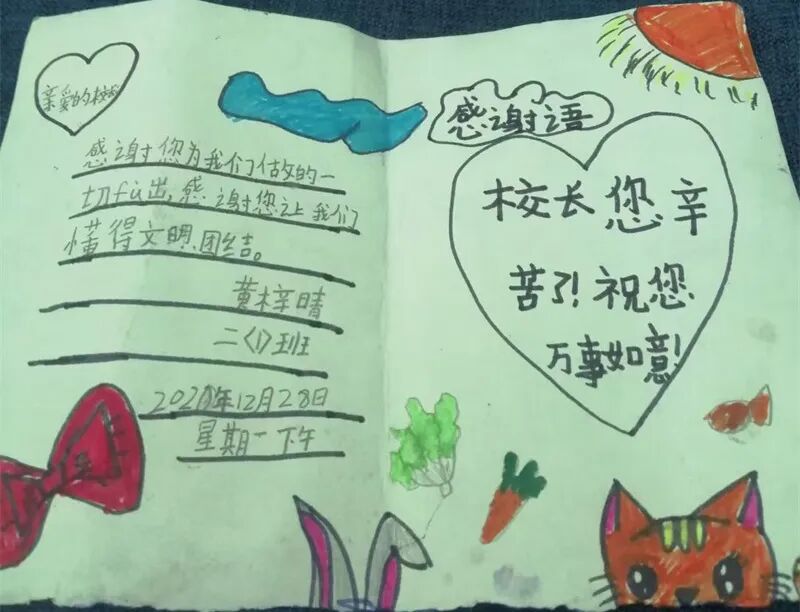 亲爱的校长
感谢您为我们做的一
切fù出,感谢您让我们
懂得文明、团结。
黄梓晴
二〈1〉班
2020年12月28日
星期一下午
感谢语
校长您辛
苦了!祝您
万事如意!